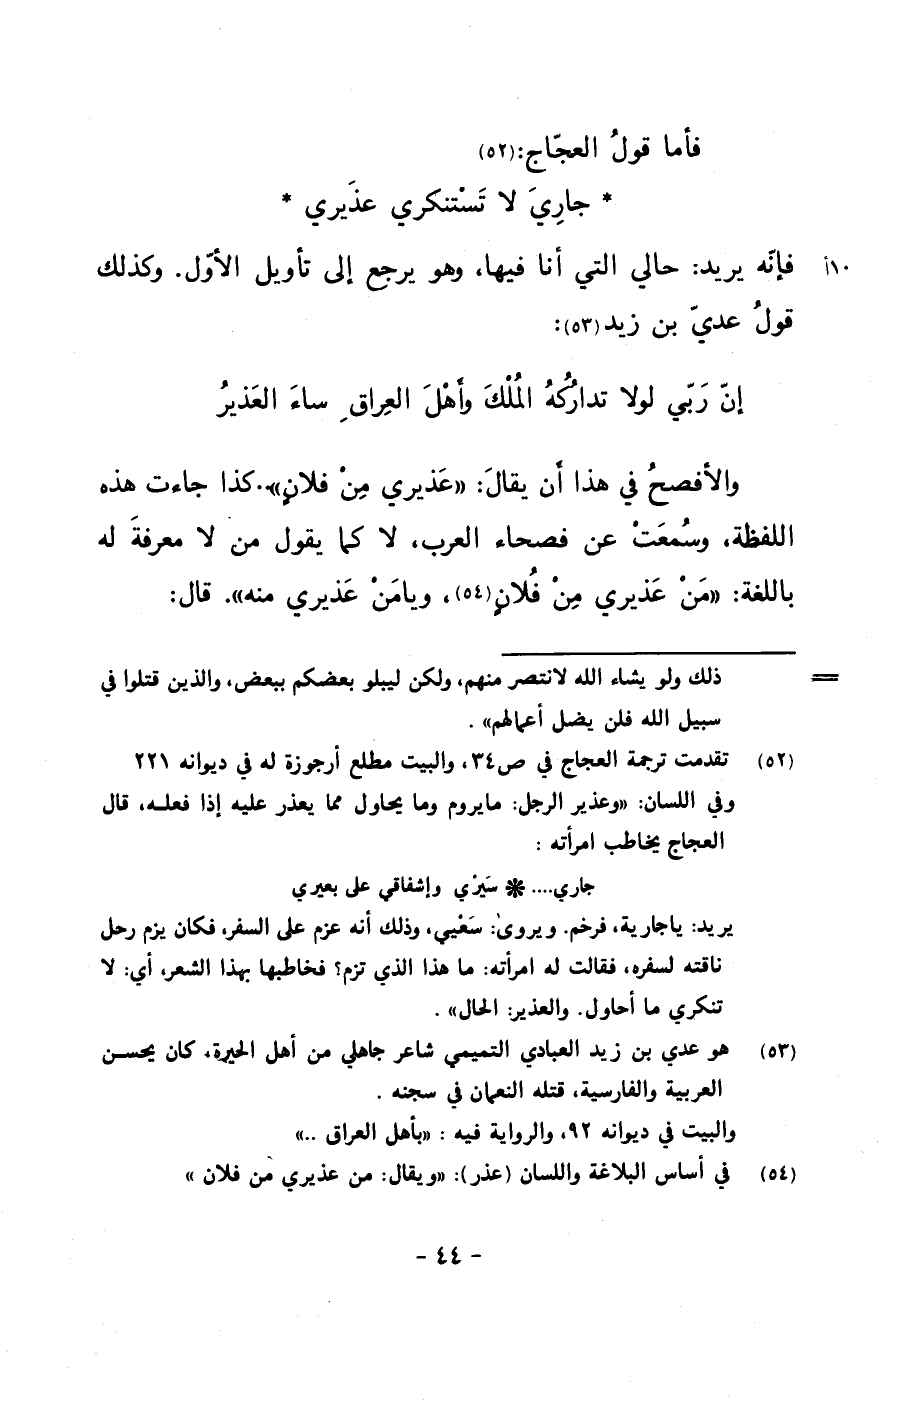 فأما قولُ العجّاج:(٥٢)
* جارِيَ لا تَسْتنكري عذَيري *
١٠أ فإنّه يريد: حالي التي أنا فيها، وهو يرجع إلى تأويل الأوّل. وكذلك
قولُ عديّ بن زيد(٥٣):
إنّ رَبّي لولا تدارُكُهُ المُلْكَ وأَهْلَ العِراقِ ساءَ العَذيرُ
والأفصحُ في هذا أَن يقالَ: «عَذيري مِنْ فلانٍ». كذا جاءت هذه
اللفظة، وسُمعَتْ عن فصحاء العرب، لا كما يقول من لا معرفةَ له
باللغة: «مَنْ عَذيري مِنْ فُلانٍ(٥٤)، ويامَنْ عَذيري منه». قال:
= ذلك ولو يشاء الله لانتصر منهم، ولكن ليبلو بعضكم ببعض، والذين قتلوا في
سبيل الله فلن يضل أعمالهم» .
(٥٢) تقدمت ترجمة العجاج في ص٣٤، والبيت مطلع أرجوزة له في ديوانه ٢٢١
وفي اللسان: «وعذير الرجل: مايروم وما يحاول مما يعذر عليه إذا فعلـه، قال
العجاج يخاطب امرأته :
جاري.... * سَيْري وإشفاقي على بعيري
يريد: ياجارية، فرخم. ويروى: سَعْيي، وذلك أنه عزم على السفر، فكان يزم رحل
ناقته لسفره، فقالت له امرأته: ما هذا الذي تزم؟ فخاطبها بهذا الشعر، أي: لا
تنكري ما أحاول. والعذير: الحال» .
(٥٣) هو عدي بن زيد العبادي التميمي شاعر جاهلي من أهل الحيرة، كان يحسـن
العربية والفارسية، قتله النعمان في سجنه .
والبيت في ديوانه ٩٢، والرواية فيه : «بأهل العراق ..»
(٥٤) في أساس البلاغة واللسان (عذر): «ويقال: من عذيري من فلان »
- ٤٤ -